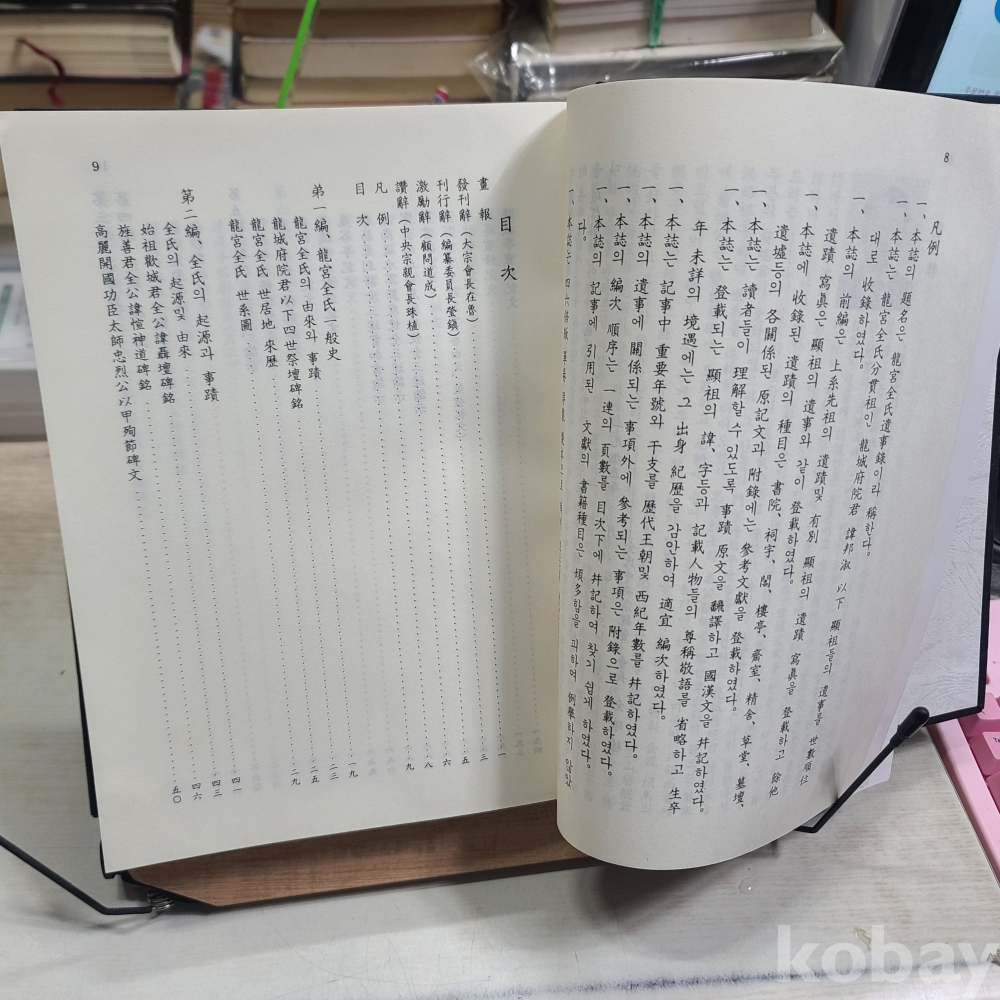 8
凡例
一、本誌의 題名은 龍宮全氏遺事錄이라 稱하다.
一、本誌는 龍宮全氏分貫祖인 龍城府院君 諱邦淑 以下 顯祖들의 遺事를 世數順位
대로 收錄하였다.
一、本誌의 前編은 上系先祖의 遺蹟및 有別 顯祖의 遺蹟 寫眞을 登載하고 餘他
遺蹟 寫眞은 顯祖의 遺事와 같이 登載하였다.
一、本誌에 收錄된 遺蹟의 種目은 書院、祠宇、閣、樓亭、齋室、精舍、草堂、墓壇、
遺墟등의 各關係된 原記文과 附錄에는 參考文獻을 登載하였다.
一、本誌는 讀者들이 理解할 수 있도록 事蹟 原文을 飜譯하고 國漢文을 幷記하였다.
一、本誌는 登載되는 顯祖의 諱、字등과 記載人物들의 尊稱敬語를 省略하고 生卒
年 未詳의 境遇에는 그 出身 紀歷을 감안하여 適宜 編次하였다.
一、本誌는 記事中 重要年號와 干支를 歷代王朝및 西紀年數를 幷記하였다.
一、本誌의 遺事에 關係되는 事項外에 參考되는 事項은 附錄으로 登載하였다.
一、本誌의 編次 順序는 一連의 頁數를 目次下에 幷記하여 찾기 쉽게 하였다.
一、本誌의 記事에 引用된 文獻의 書籍種目은 煩多함을 피하여 例擧하지 않았
다.
一、本誌는
9
目次
畫報 一
發刊辭 (大宗會長在魯) 三
刊行辭 (編纂委員長瑩鎭) 五
激勵辭 (顧問道成) 六
讚辭 (中央宗親會長珠植) 八
凡例 九
目次 一九
弟一編、龍宮全氏一般史
龍宮全氏의 由來와 事蹟 二三
龍城府院君以下四世祭壇碑銘 二五
龍宮全氏 世居地 來歷 二九
龍宮全氏 世系圖 四一
第二編、全氏의 起源과 事蹟
全氏의 起源및 由來 四三
始祖歡城君全公諱聶壇碑銘 四六
旌善君全公諱愃神道碑銘 五〇
高麗開國功臣太師忠烈公以甲殉節碑文
kobay